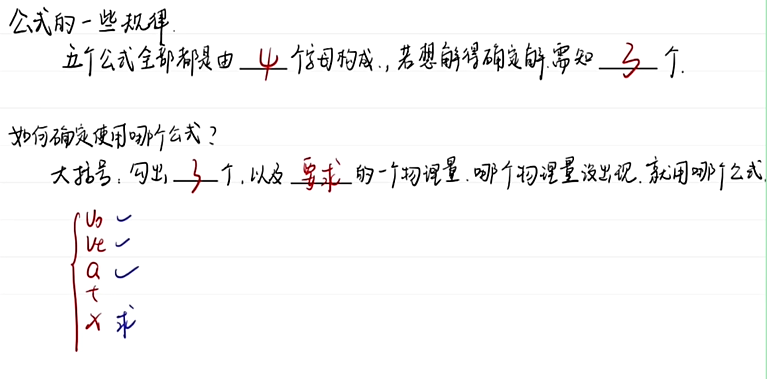 公式的一些规律.
五个公式全部都是由 4 个字母构成., 若想解得确定解.需知 3 个.
如何确定使用哪个公式?
大括号: 勾出 3 个, 以及 要求 的一个物理量.哪个物理量没出现.就用哪个公式.
V₀ ✓
Vt ✓
a ✓
t
x 求